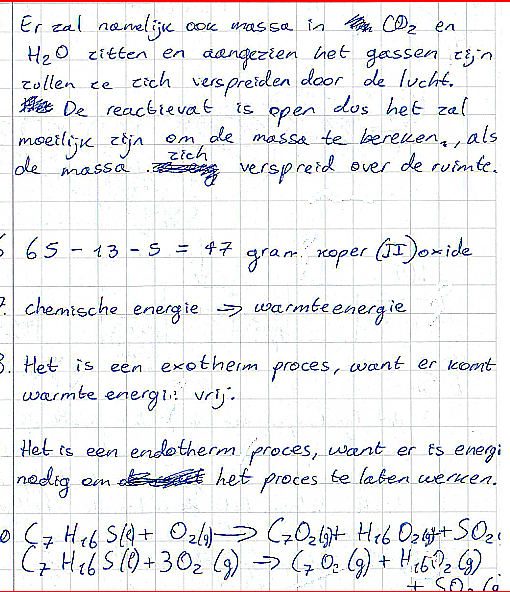 Er zal namelijk ook massa in CO2 en
H2O zitten en aangezien het gassen zijn
zullen ze zich verspreiden door de lucht.
De reactievat is open dus het zal
moeilijk zijn om de massa te bereken., als
de massa zich verspreid over de ruimte.
65 - 13 - 5 = 47 gram koper (II)oxide
7. chemische energie => warmteenergie
8. Het is een exotherm proces, want er komt
warmte energie vrij.
Het is een endotherm proces, want er is energi
nodig om het proces te laten werken.
C7 H16 S(l) + O2(g) → C7O2(g)+ H16O2(g)+SO2(
C7 H16 S(l) + 3O2 (g) → C7O2 (g) + H16O2 (g)
+ SO2 (g